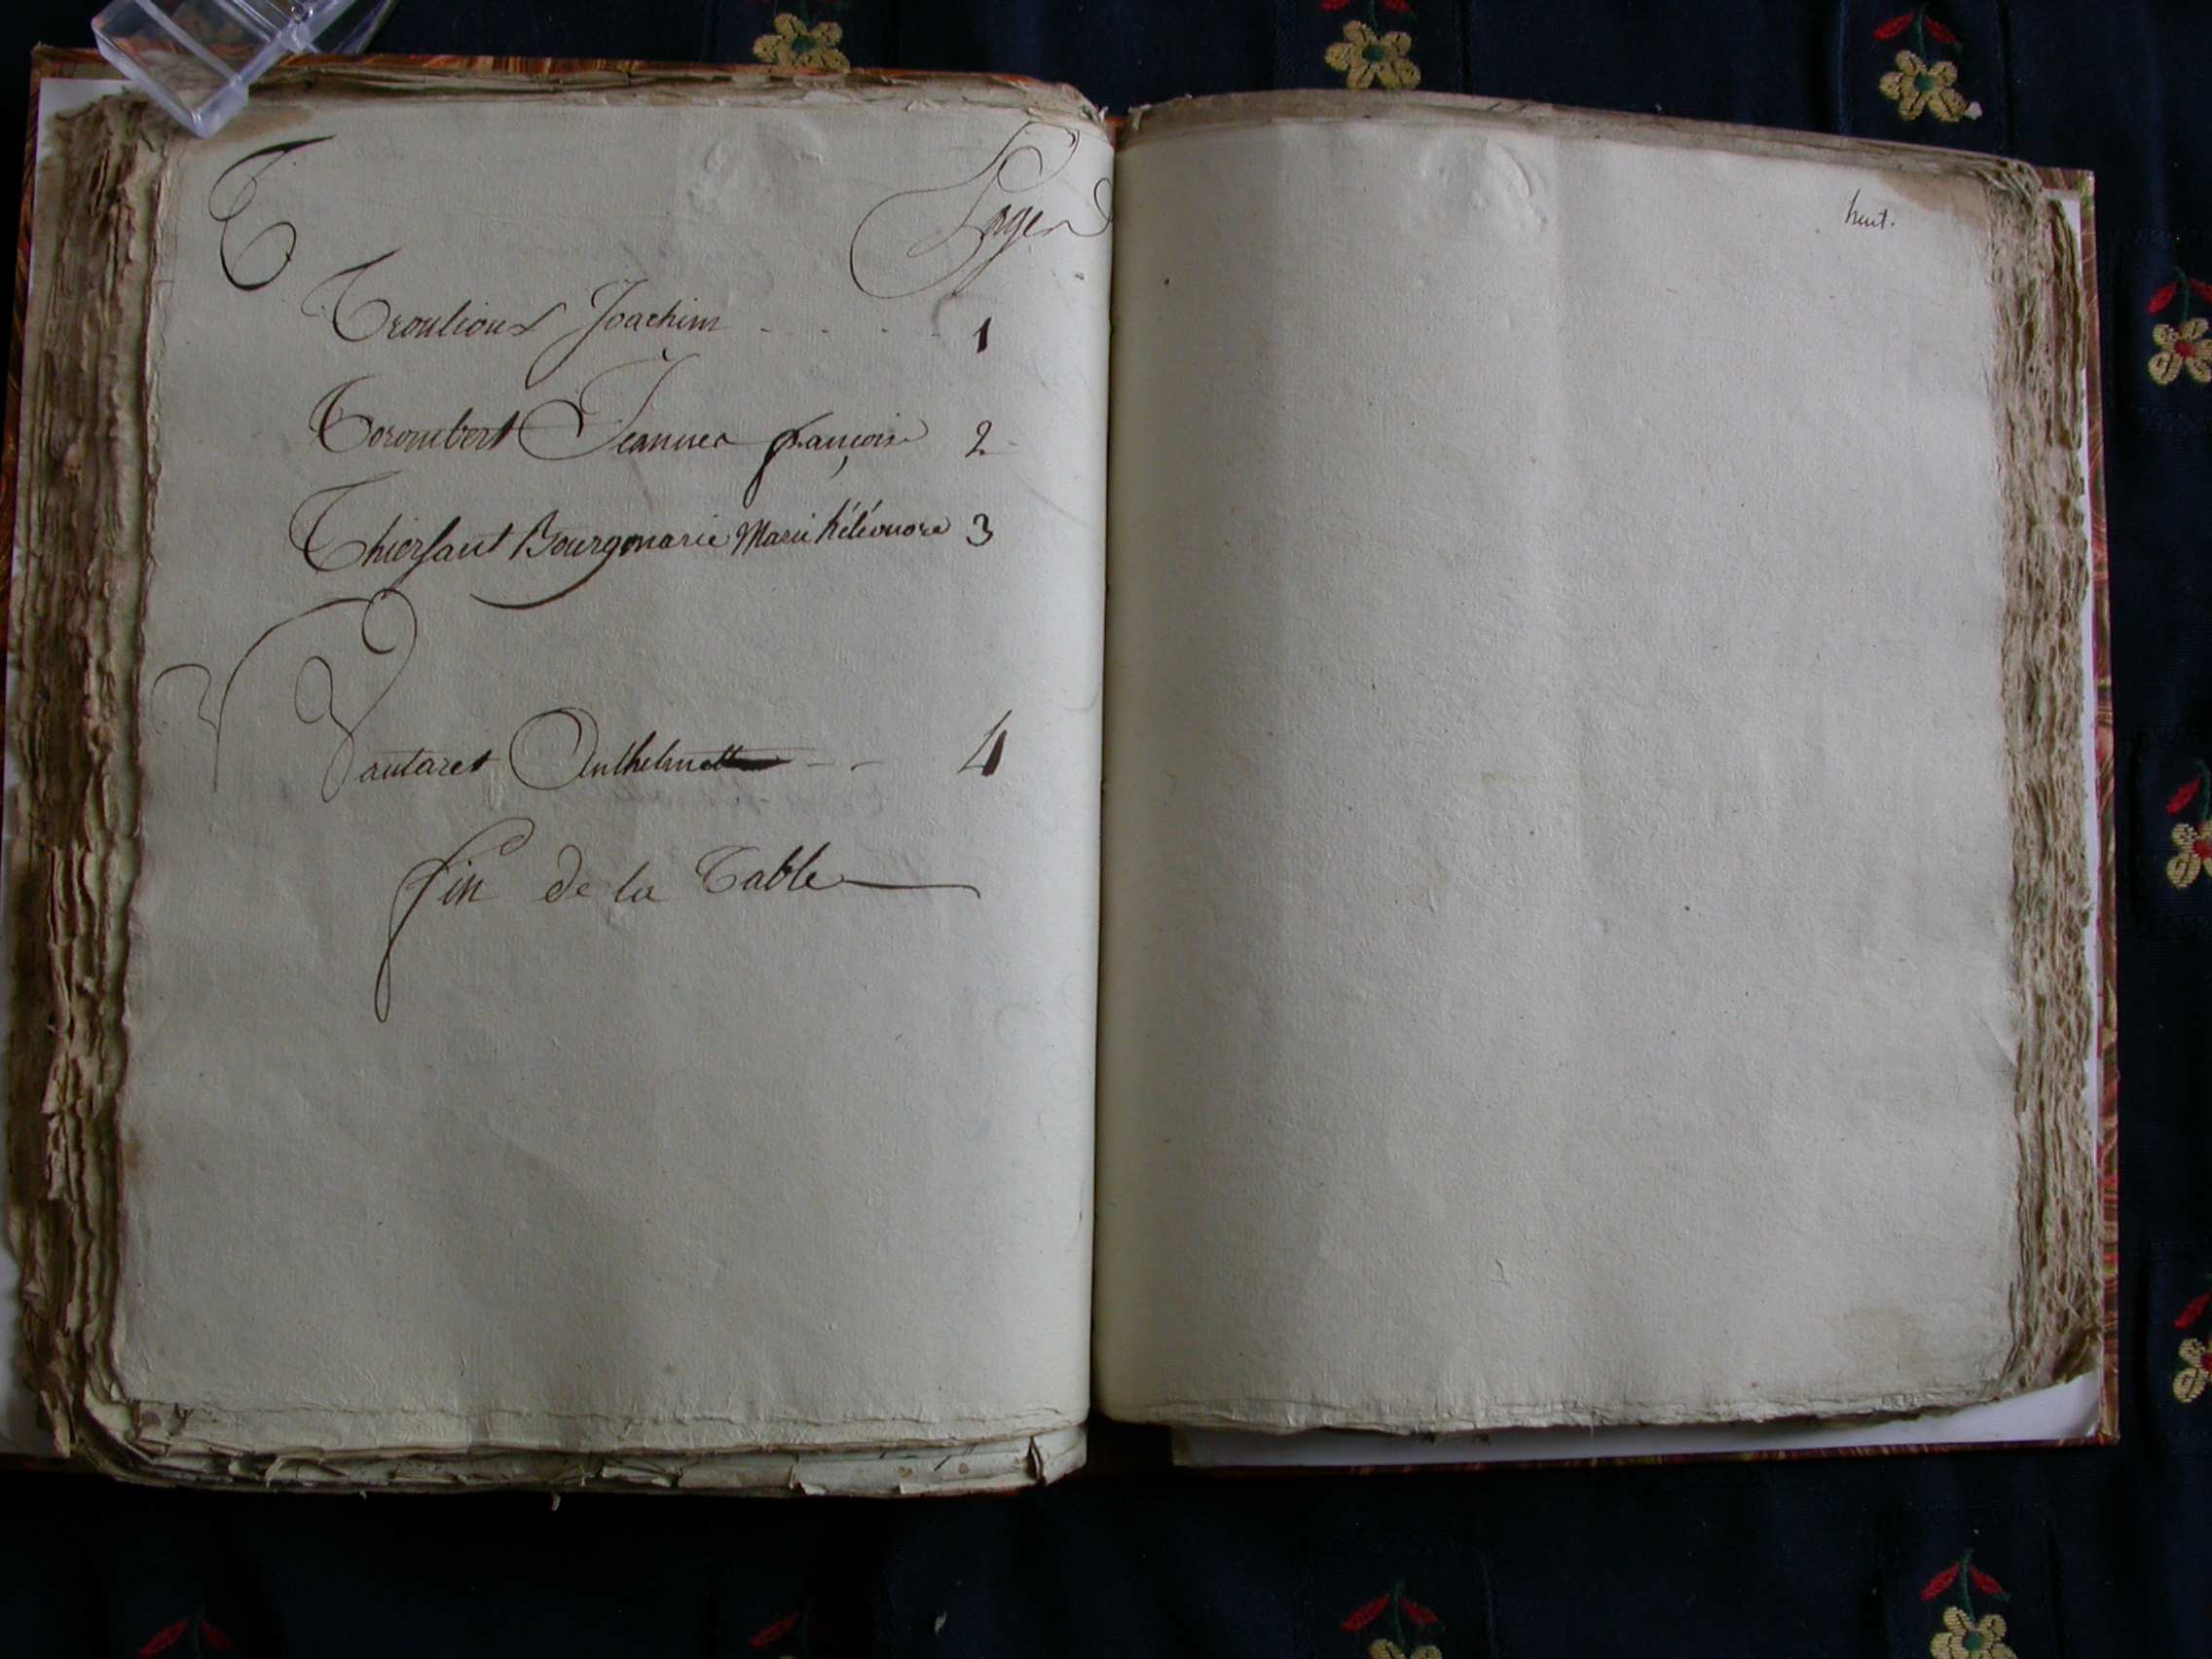 T
Pages
Troulioux Joachim - - - - - 1
Corombert Jeanne françoise 2
Thiersant Bourgmarie Marie héléonore 3
V
Vautaret Anthelmette - - 4
fin de la Table
huit.